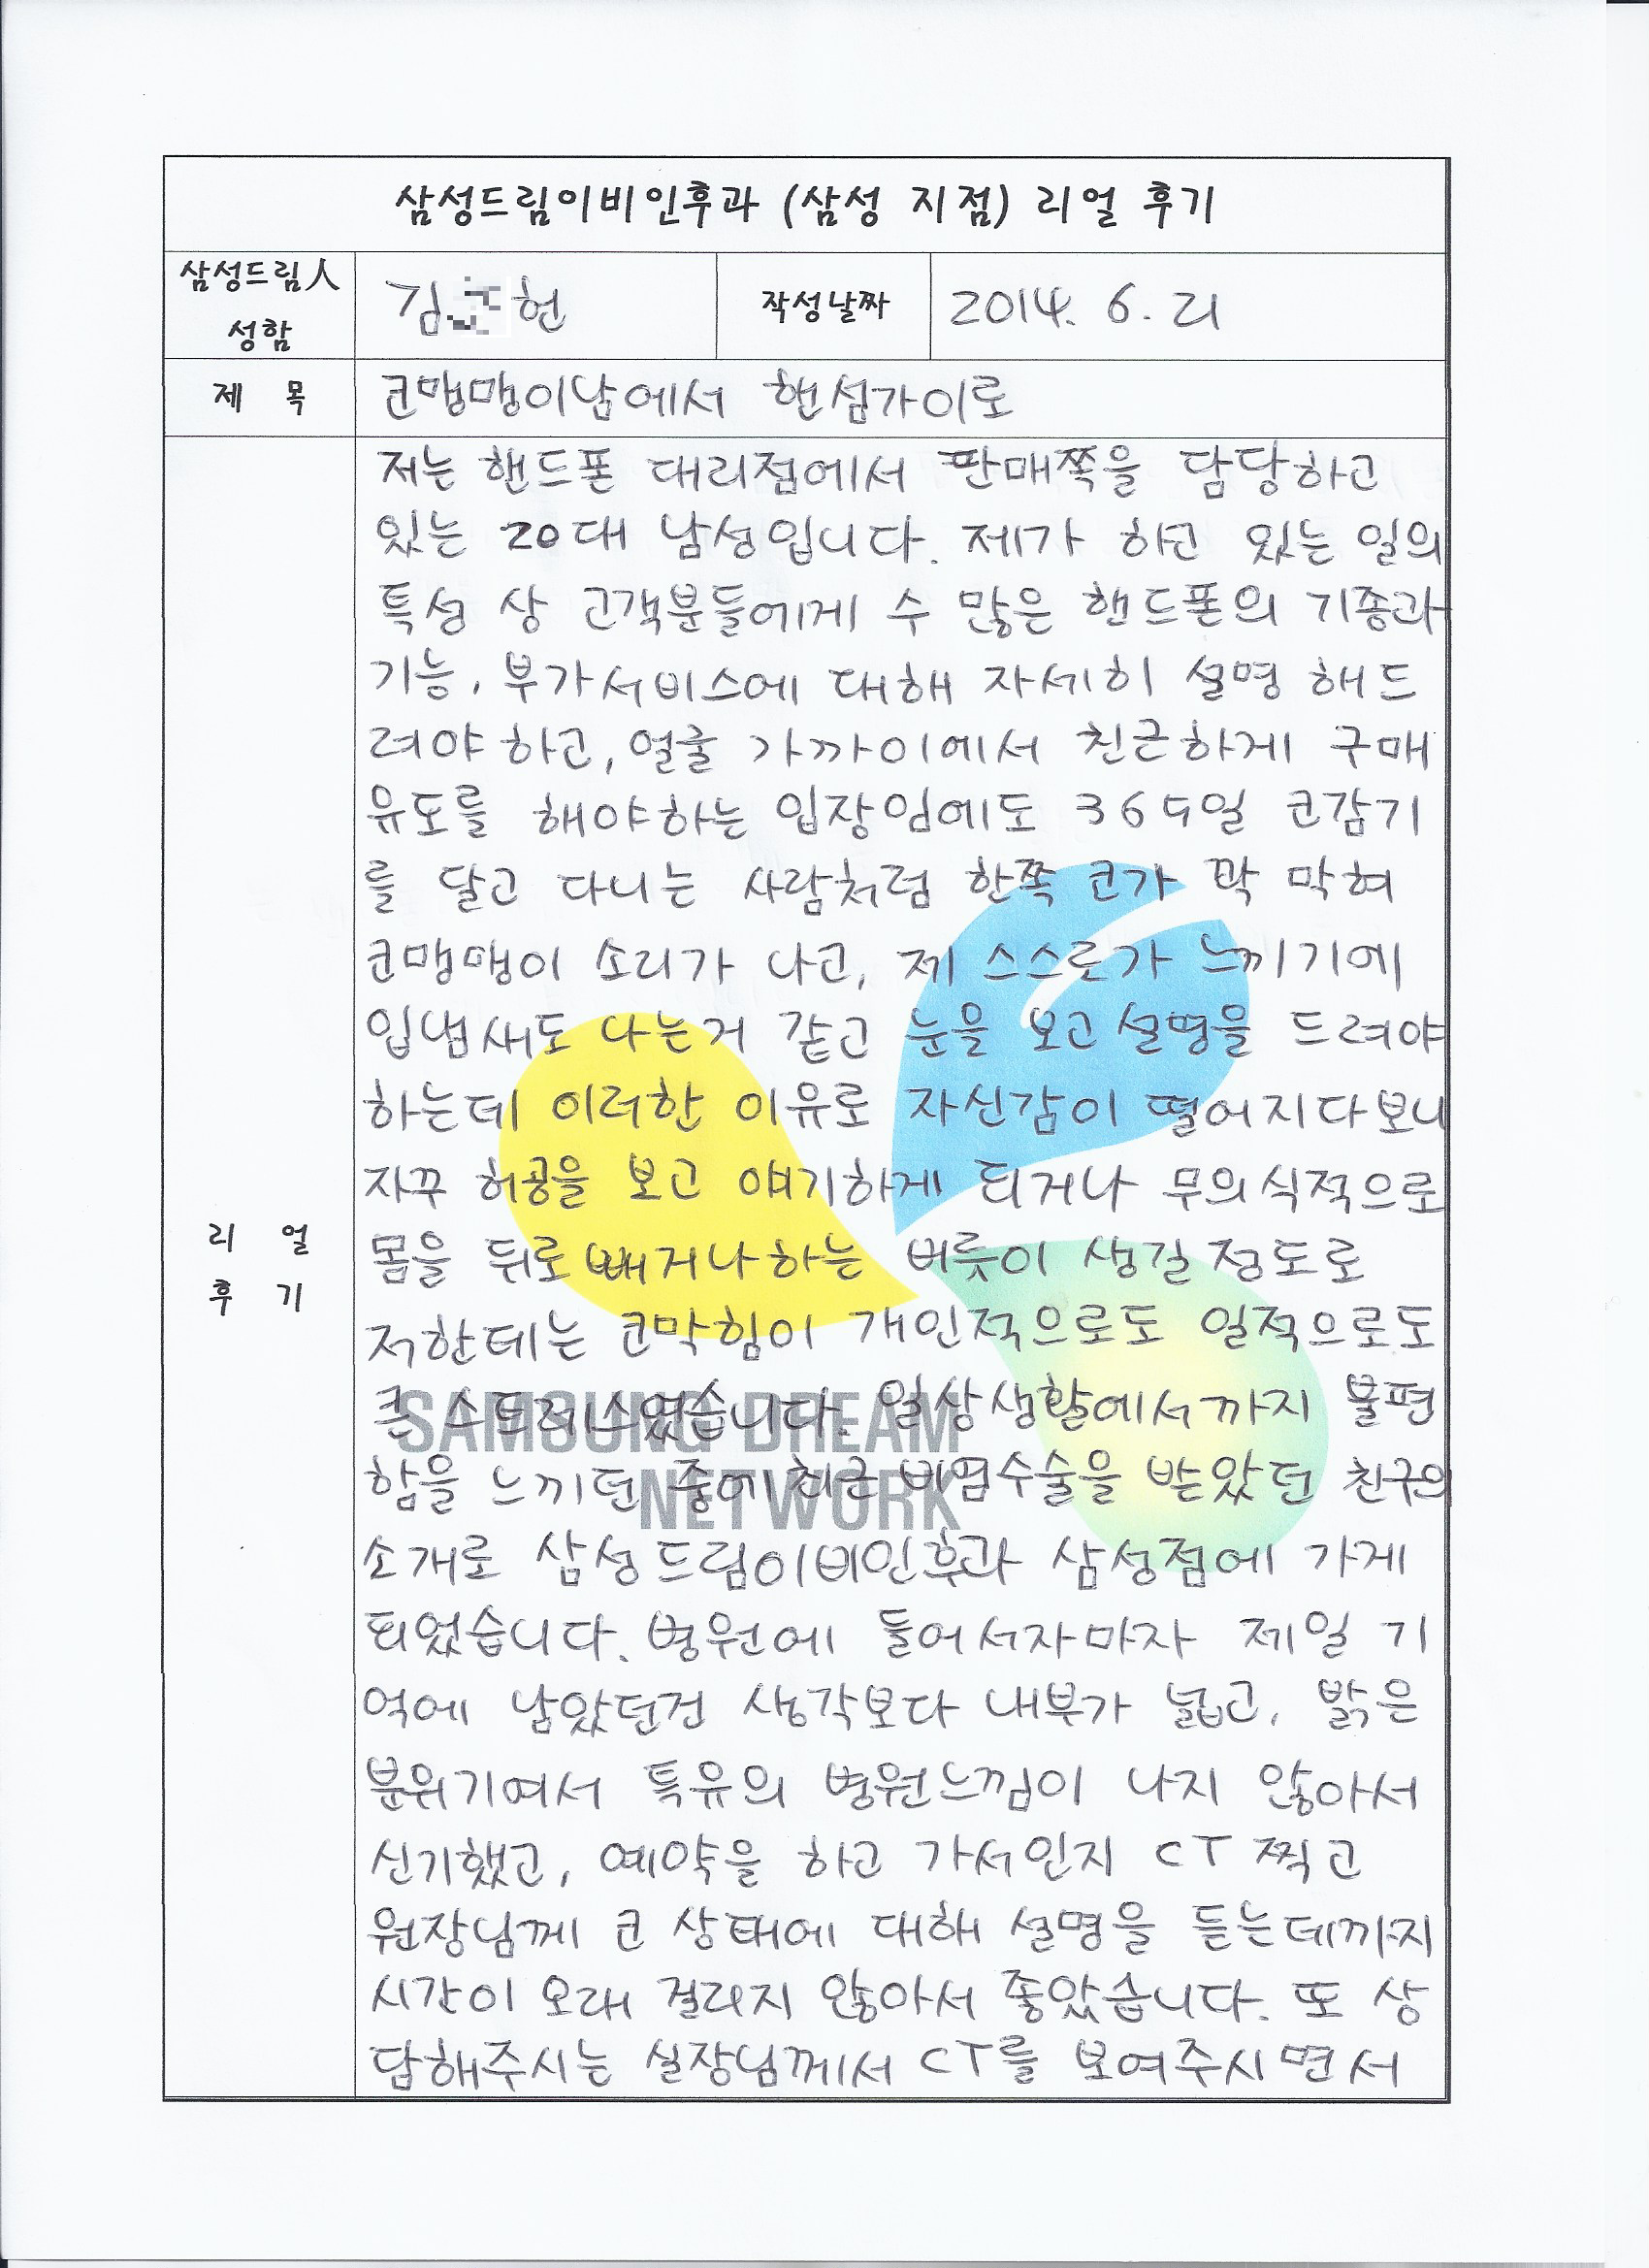 삼성드림이비인후과 (삼성 지점) 리얼 후기
삼성드림人
성함
김 헌
작성날짜
2014. 6. 21
제 목
코맹맹이남에서 핸섬가이로
저는 핸드폰 대리점에서 판매쪽을 담당하고
있는 20대 남성입니다. 제가 하고 있는 일의
특성 상 고객분들에게 수 많은 핸드폰의 기종과
기능, 부가서비스에 대해 자세히 설명 해드
려야 하고, 얼굴 가까이에서 친근하게 구매
유도를 해야하는 입장임에도 365일 코감기
를 달고 다니는 사람처럼 한쪽 코가 꽉 막혀
코맹맹이 소리가 나고, 제 스스로가 느끼기에
입냄새도 나는거 같고 눈을 보고 설명을 드려야
하는데 이러한 이유로 자신감이 떨어지다보니
자꾸 허공을 보고 얘기하게 되거나 무의식적으로
몸을 뒤로 빼거나 하는 버릇이 생길 정도로
저한테는 코막힘이 개인적으로도 일적으로도
큰 스트레스였습니다. 일상생활에서까지 불편
함을 느끼던 중에 최근 비염수술을 받았던 친구의
소개로 삼성드림이비인후과 삼성점에 가게
되었습니다. 병원에 들어서자마자 제일 기
억에 남았던건 생각보다 내부가 넓고, 밝은
분위기여서 특유의 병원느낌이 나지 않아서
신기했고, 예약을 하고 가서인지 CT 찍고
원장님께 코 상태에 대해 설명을 듣는데까지
시간이 오래 걸리지 않아서 좋았습니다. 또 상
담해주시는 실장님께서 CT를 보여주시면서
리 얼
후 기
SAMSUNG DREAM
NETWORK